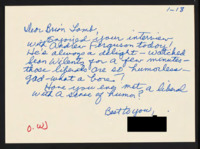 1-13
Dear Brian Lamb,
Enjoyed your interview
with Andrew Ferguson today!
He's always a delight - watched
Leon Wylenty for a few minutes -
those libs are so humorless -
God - what a bore!
Hope you eng met a liberal
with a sense of humor.
Best to you,